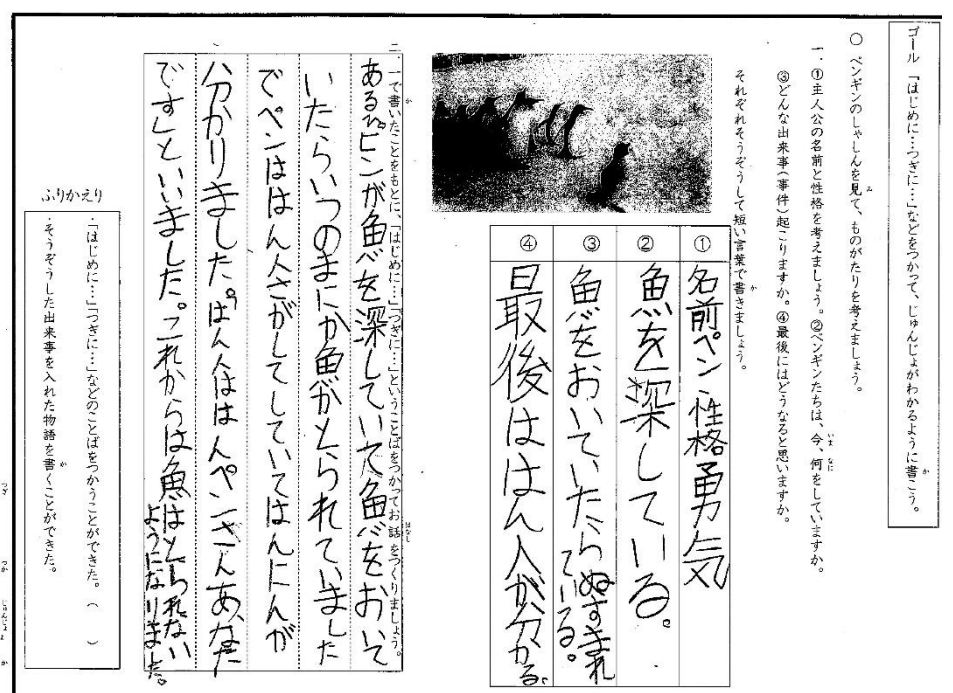 ゴール 「はじめに…つぎに…」などをつかって、じゅんじょがわかるように書こう。
か
〇 ペンギンのしゃしんを見て、ものがたりを考えましょう。
み
一、①主人公の名前と性格を考えましょう。②ペンギンたちは、今、何をしていますか。
いま なに
③どんな出来事(事件)起こりますか。④最後にはどうなると思いますか。
それぞれそうぞうして短い言葉で書きましょう。
か
① 名前ペン・性格勇気
② 魚を探している。
③ 魚をおいていたらぬすまれ
ている。
④ 最後ははん人が分かる。
二、一で書いたことをもとに、「はじめに…」「つぎに…」ということばをつかってお話をつくりましょう。
か はなし
ある日ピンが魚を深していて魚をおいて
いたらいつのまにか魚がとられていました
でペンははん人さがしてしていてはんにんが
分かりました。はん人ははんペンさんあなた
です」といいました。これからは魚はとられない
ようになりました。
ふりかえり
・「はじめに…」「つぎに…」などのことばをつかうことができた。( )
・そうぞうした出来事を入れた物語を書くことができた。
か